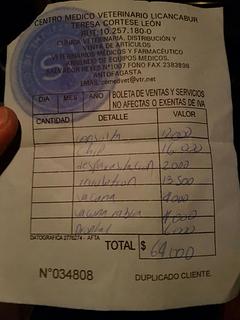 CENTRO MEDICO VETERINARIO LICANCABUR
TERESA CORTESE LEÓN
RUT: 10.257.180-0
CLINICA VETERINARIA, DISTRIBUCIÓN Y
VENTA DE ARTÍCULOS
VETERINARIOS MÉDICOS Y FARMACÉUTICO
ARRIENDO DE EQUIPOS MEDICOS.
SALVADOR REYES N°1007 FONO FAX 2383898
ANTOFAGASTA
EMAIL: cemedivet@vtr.net
DIA MES AÑO BOLETA DE VENTAS Y SERVICIOS
NO AFECTAS O EXENTAS DE IVA
CANTIDAD DETALLE VALOR
consulta 12.000
chip 16.000
desparasitacion 2.000
13.500
vacuna 9.000
vacuna rabia
6.000
DATOGRAFICA 2776274 - AFTA
TOTAL $ 64.000
N°034808 DUPLICADO CLIENTE.